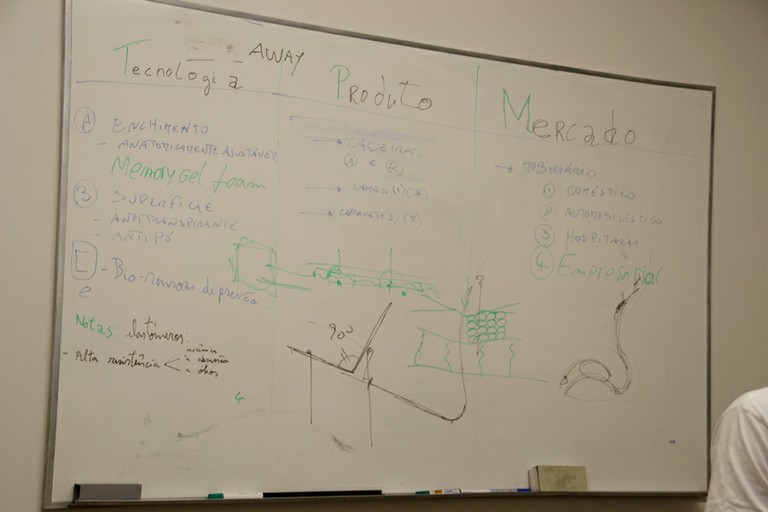 AWAY
Tecnologia
Produto
Mercado
A ENCHIMENTO
- ANATOMICAMENTE AJUSTÁVEL
Memory gel foam
B SUPERFÍCIE
- ANTITRANSPIRANTE
- ANTIPÓ
C - Bio-sensores de pressão
e
Notas: Elastómeros:
- Alta resistência
mecânica
à abrasão
a óleos
→ CADEIRAS
A e B
→ CAMAS
→ CAPACETES
→ MOBILIÁRIO
1 DOMÉSTICO
2 AUTOMOBILÍSTICO
3 HOSPITALAR
4 Empresarial
90°
4